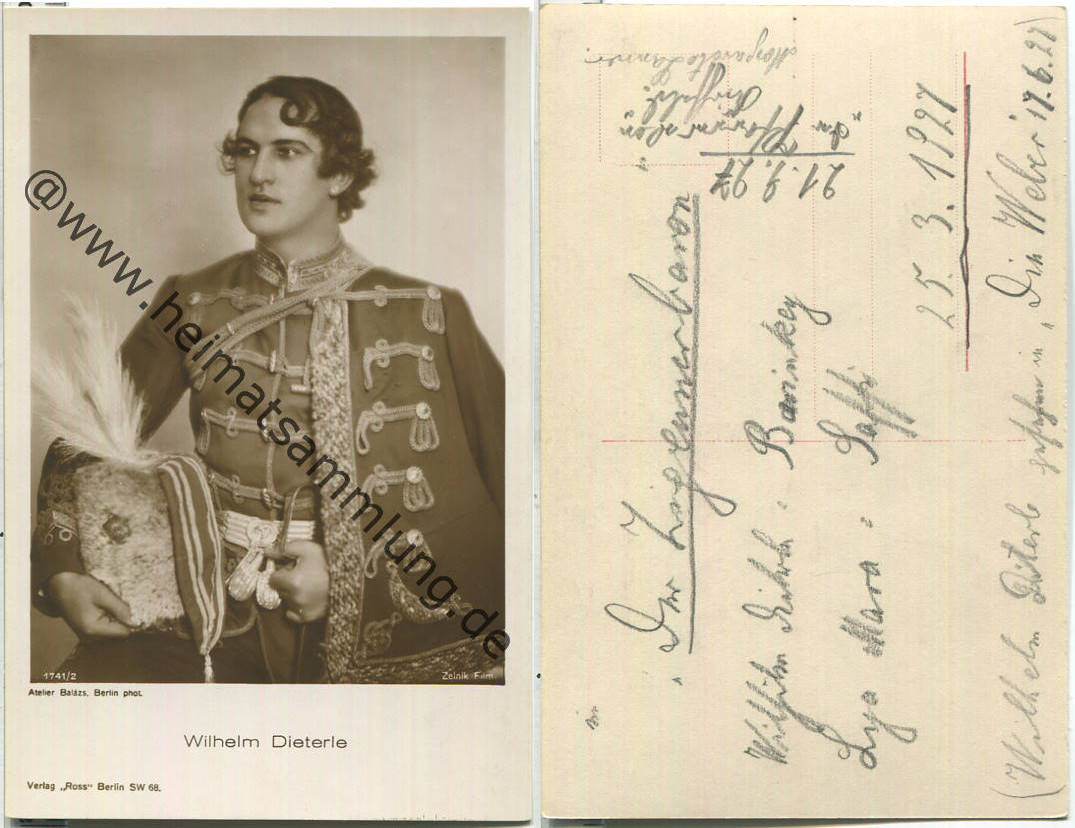 @www.heimatsammlung.de
1741/2
Zelnik Film
Atelier Balázs, Berlin phot.
Wilhelm Dieterle
Verlag „Ross“ Berlin SW 68.
in
„Der Zigeunerbaron
Wilhelm Dieterle : Barinkay
Lya Mara : Saffi
25. 3. 1927
(Wilhelm Dieterle gesehen in „Die Weber“ 17.6.27)
21.9.27
„Der Pfarrer von
Kirchfeld“
Margarethe Lanner